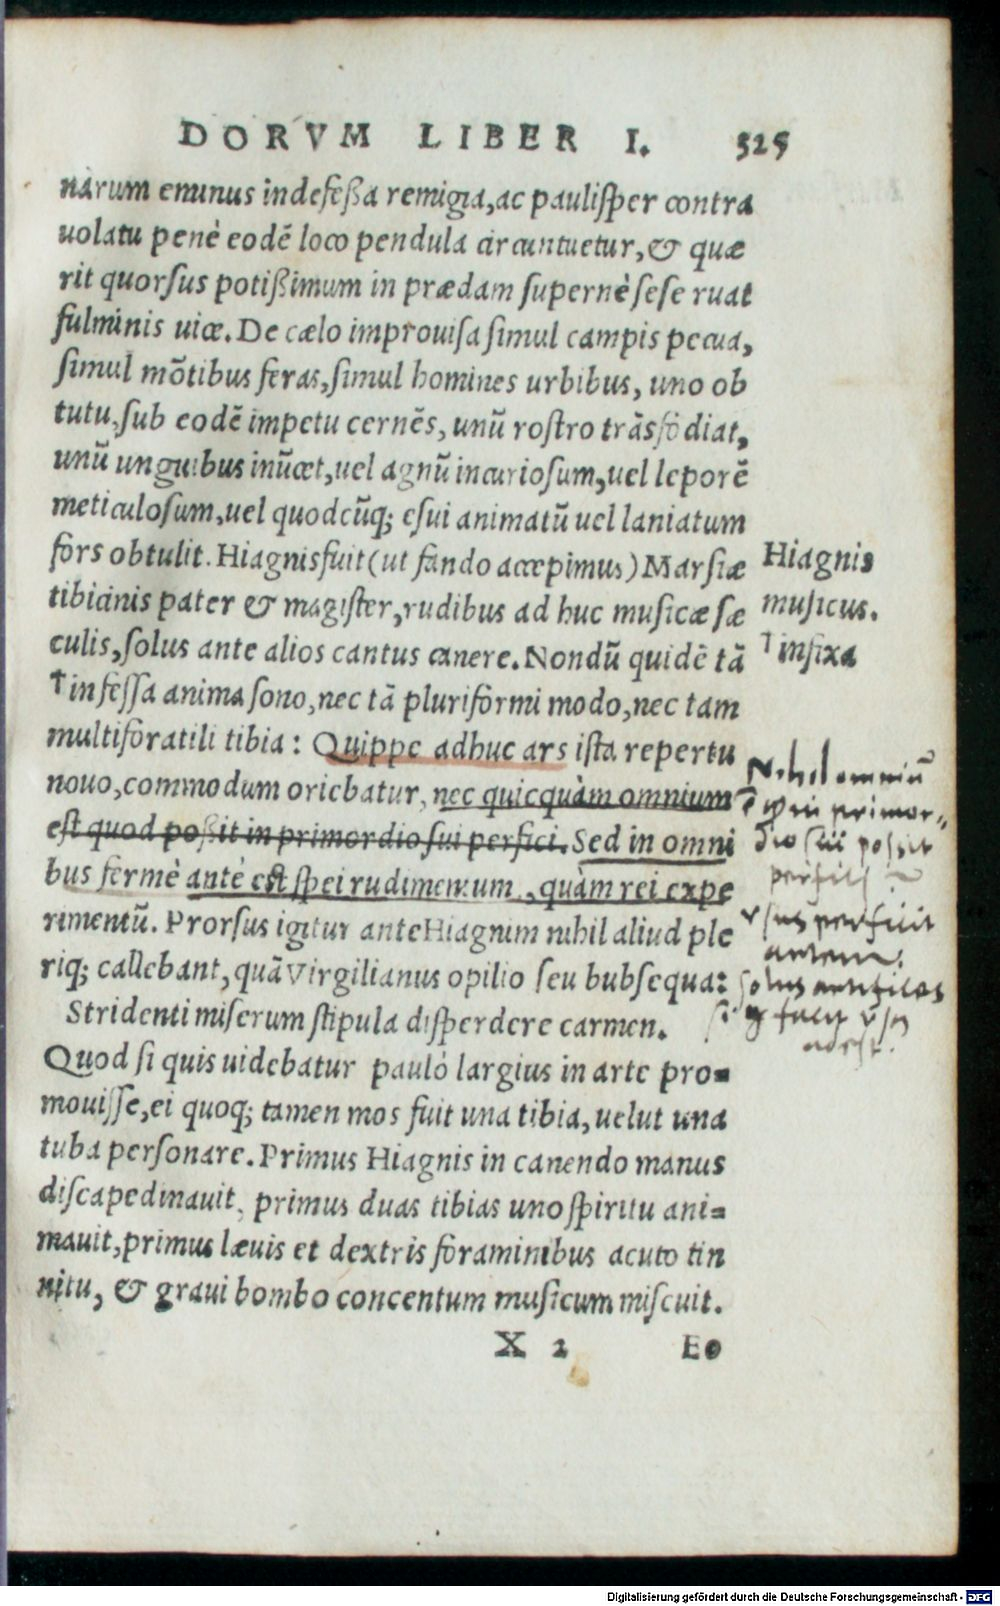 DORVM LIBER I. 325
narum eminus indefeßa remigia, ac paulisper contra
uolatu penè eodē loco pendula circuntuetur, & quæ
rit quorsus potißimum in prædam supernè sese ruat
fulminis uice. De cælo improuisa simul campis pecua,
simul mōtibus feras, simul homines urbibus, uno ob
tutu, sub eodē impetu cernēs, unū rostro trāsfodiat,
unū unguibus inūcet, uel agnū incuriosum, uel leporē
meticulosum, uel quodcūq; esui animatū uel laniatum
fors obtulit. Hiagnis fuit (ut fando accepimus) Marsiæ
tibicinis pater & magister, rudibus ad huc musicæ sæ
culis, solus ante alios cantus canere. Nondū quidē tā
†infessa anima sono, nec tā pluriformi modo, nec tam
multiforatili tibia: Quippe adhuc ars ista repertu
nouo, commodum oriebatur, nec quicquàm omnium
est quod poßit in primordio sui perfici. Sed in omni
bus fermè antè est spei rudimentum, quàm rei expe
rimentū. Prorsus igitur ante Hiagnim nihil aliud ple
riq; callebant, quā Virgilianus opilio seu bubsequa:
Stridenti miserum stipula disperdere carmen.
Quod si quis uidebatur pauló largius in arte pro=
mouisse, ei quoq; tamen mos fuit una tibia, uelut una
tuba personare. Primus Hiagnis in canendo manus
discapedinauit, primus duas tibias uno spiritu ani=
mauit, primus læuis et dextris foraminibus acuto tin
nitu, & graui bombo concentum musicum miscuit.
X 2 Eo
Hiagnis
musicus.
†infixa
Nihil omniū
primor=
dio sui possit
perfici
usus perficit
autem
solus artifices
facit usq
adest.
Digitalisierung gefördert durch die Deutsche Forschungsgemeinschaft - DFG